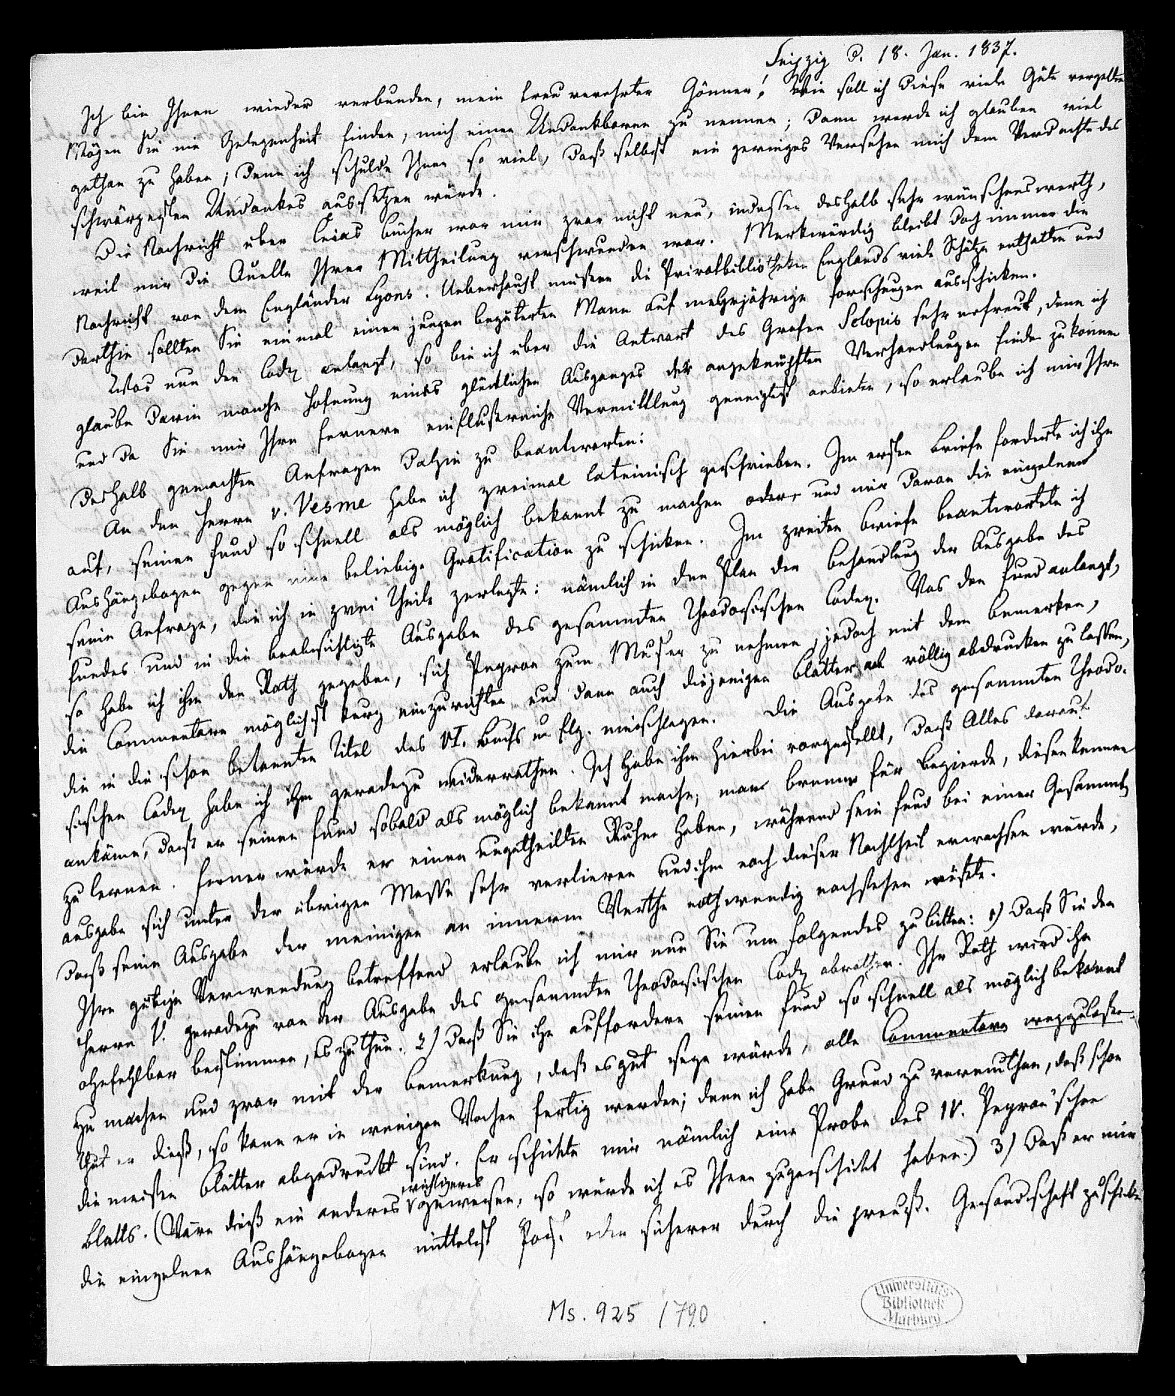 Leipzig d. 18. Jan. 1837.
Ich bin Ihnen wieder verbunden, mein treu verehrter Gönner! Wie soll ich diese viele Güte vergelten
Mögen Sie nie Gelegenheit finden, mich einen Undankbaren zu nennen; dann werde ich glauben viel
gethan zu haben; denn ich schulde Ihnen so viel, daß selbst ein geringes Versehen mich dem Verdachte des
schwärzesten Undankes aussetzen würde.
Die Nachricht über Cujas bücher war mir zwar nicht neu, indessen deshalb sehr wünschenswerth,
weil mir die Quelle Ihrer Mittheilung verschwunden war. Merkwürdig bleibt doch immer die
Nachricht von dem Engländer Lyons. Ueberhaupt müssen die Privatbibliotheken Englands viele Schätze enthalten und
dorthin sollten Sie einmal einen jungen begüterten Mann auf mehrjährige forschungen ausschicken.
Was nun den Codex anlangt, so bin ich über die Antwort des Grafen Sclopis sehr erfreut, denn ich
glaube darin manche Hofnung eines glücklichen Ausganges der angeknüpften Verhandlungen finden zu können
und da Sie mir Ihre fernere einflußreiche Vermittlung geneigtest anbieten, so erlaube ich mir Ihre
deshalb gemachten Anfragen dahin zu beantworten:
An den Herrn v. Vesme habe ich zweimal lateinisch geschrieben. Im ersten Briefe forderte ich ihn
auf, seinen fund so schnell als möglich bekannt zu machen oder und mir davon die einzelnen
Aushängebogen gegen eine beliebige Gratification zu schicken. Im zweiten briefe beantwortete ich
seine Anfrage, die ich in zwei Theile zerlegte: nämlich in den Plan der behandlung der Ausgabe des
fundes und in die beabsichtigte Ausgabe des gesammten Theodosischen Codex. Was den fund anlangt,
so habe ich ihm den Rath gegeben, sich Peyron zum Muster zu nehmen, jedoch mit dem bemerken,
die Commentare möglichst kurz einzurichten und dann auch diejenigen blätter völlig abdrucken zu lassen,
die in die schon bekannten Titel des VI. buchs u flg. einschlagen. Die Ausgabe des gesammten Theodo-
sischen Codex habe ich ihm geradezu widerrathen. Ich habe ihm hierbei vorgestellt, daß Alles darauf
ankäme, daß er seinen fund sobald als möglich bekannt mache; man brenne für begierde, diesen kennen
zu lernen. ferner würde er einen ungetheilten Ruhm haben, während sein fund bei einer Gesammt-
ausgabe sich unter der übrigen Masse sehr verlieren und ihm noch dieser Nachtheil erwachsen würde,
daß seine Ausgabe der meinigen an innerm Werthe nothwendig nachstehen müßte.
Ihre gütige Verwendung betreffend erlaube ich mir nun Sie um folgendes zu bitten: 1) daß Sie den
Herrn V. geradezu von der Ausgabe des gesammten Theodosischen Codex abrathen. Ihr Rath wird ihn
ohnfehlbar bestimmen, es zu thun. 2) daß Sie ihn auffordern seinen fund so schnell als möglich bekannt
zu machen und zwar mit der bemerkung, daß es gut seyn würde, alle Commentare wegzulassen.
Thut er dieß, so kann er in wenigen Wochen fertig werden; denn ich habe Grund zu vermuthen, daß schon
die meisten blätter abgedruckt sind. Er schickte mir nämlich eine Probe des IV. Peyron'schen
blatts. (Wäre dieß ein anderes wichtigeres gewesen, so würde ich es Ihnen zugeschickt haben.) 3) daß er mir
die einzelnen Aushängebogen mittelst Post oder sicherer durch die preuß. Gesandschaft zuschicke
Ms. 925/790
Universitäts-
Bibliothek
Marburg